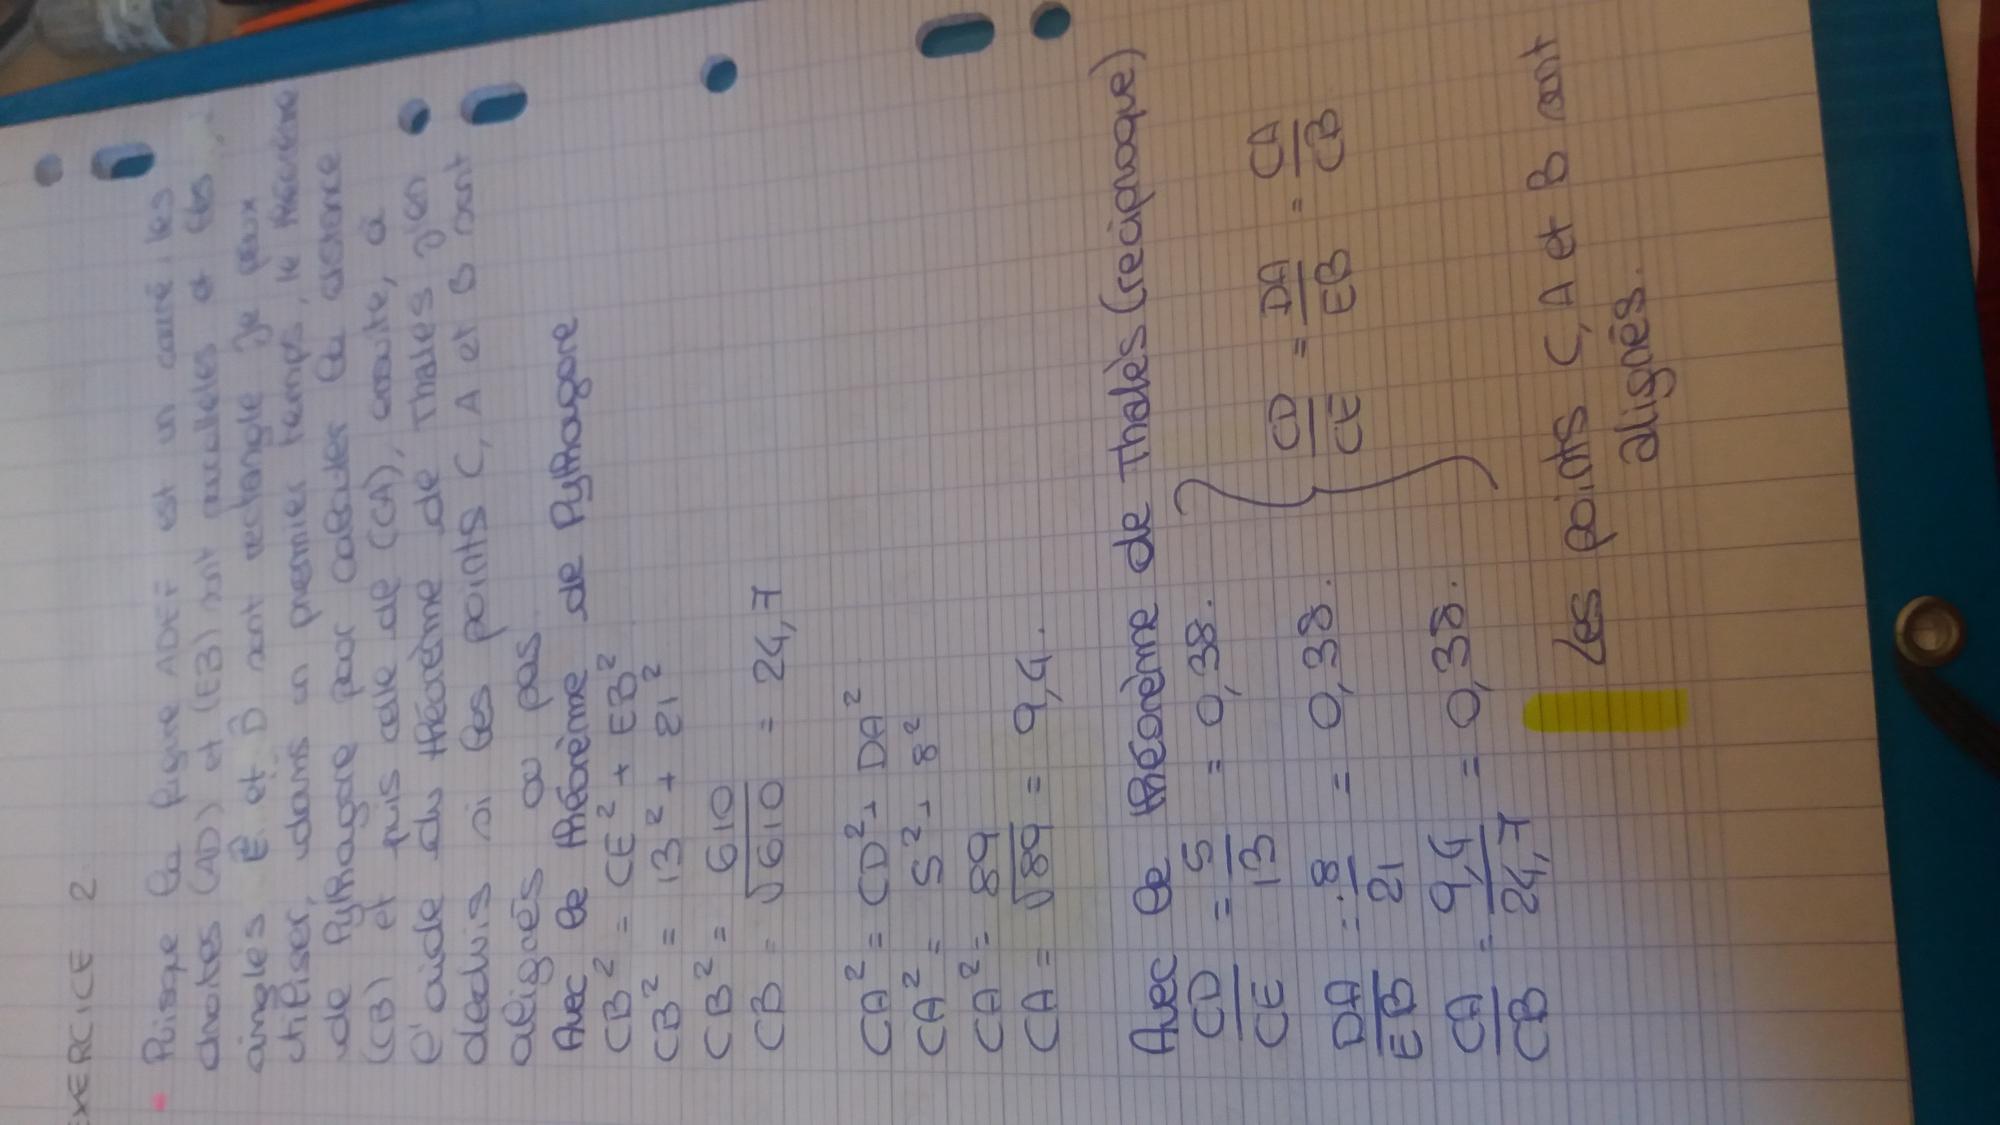 EXERCICE 2
Puisque la figure ADEF est un carré, les
droites (AD) et (EB) sont parallèles et les
angles Ê et D̂ sont rectangle je peux
utiliser, dans un premier temps, le théorème
de Pythagore pour calculer la distance
(CB) et puis celle de (CA), ensuite, à
l'aide du théorème de Thalès j'en
déduis si les points C, A et B sont
alignés ou pas.
Avec le théorème de Pythagore
CB² = CE² + EB²
CB² = 13² + 21²
CB² = 610
CB = √610 = 24,7
CA² = CD² + DA²
CA² = 5² + 8²
CA² = 89
CA = √89 = 9,4.
Avec le théorème de Thalès (reciproque)
CD/CE = 5/13 = 0,38.
DA/EB = 8/21 = 0,38.
CA/CB = 9,4/24,7 = 0,38.
CD/CE = DA/EB = CA/CB
Les points C, A et B sont
alignés.